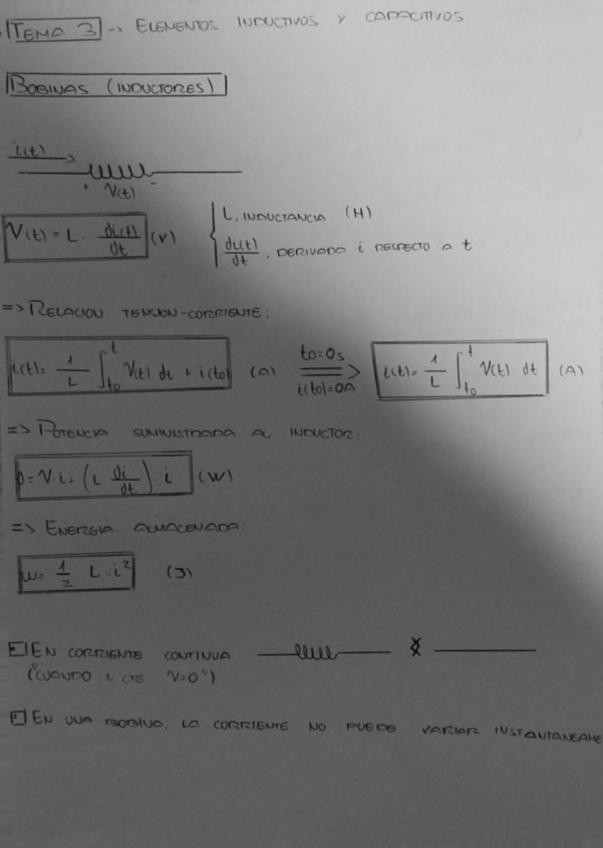 TEMA 3 -> ELEMENTOS INDUCTIVOS Y CAPACITIVOS
BOBINAS (INDUCTORES)
i(t)
+ V(t) -
V(t) = L · di(t)/dt (V) { L, INDUCTANCIA (H)
di(t)/dt, DERIVADA i RESPECTO A t
=> RELACION TENSION-CORRIENTE:
i(t) = 1/L ∫t0^t V(t) dt + i(t0) (A) t0=0s => i(t0)=0A i(t) = 1/L ∫t0^t V(t) dt (A)
=> POTENCIA SUMINISTRADA AL INDUCTOR:
p = V·i = (L di/dt)·i (W)
=> ENERGIA ALMACENADA:
w = 1/2 L·i² (J)
EN CORRIENTE CONTINUA
(CUANDO i CTE V=0")
EN UNA BOBINA, LA CORRIENTE NO PUEDE VARIAR INSTANTANEAME